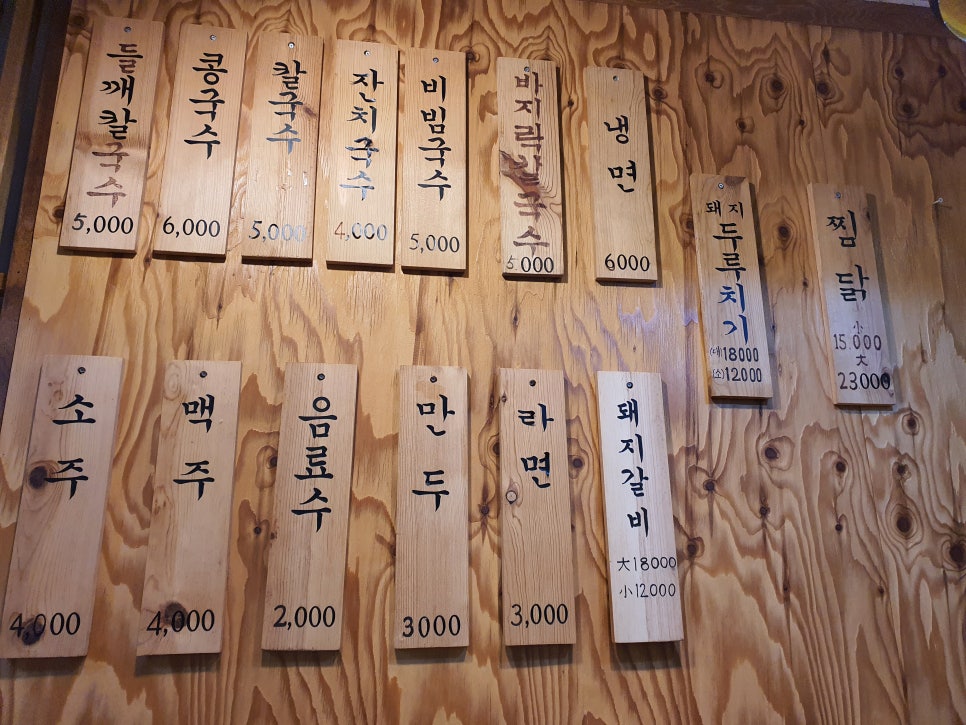 들깨칼국수
5,000
콩국수
6,000
칼국수
5,000
잔치국수
4,000
비빔국수
5,000
바지락칼국수
5,000
냉면
6000
돼지
두루치기
(대)18000
(소)12000
찜닭
小
15.000
大
23000
소주
4,000
맥주
4,000
음료수
2,000
만두
3000
라면
3,000
돼지갈비
大18000
小12000